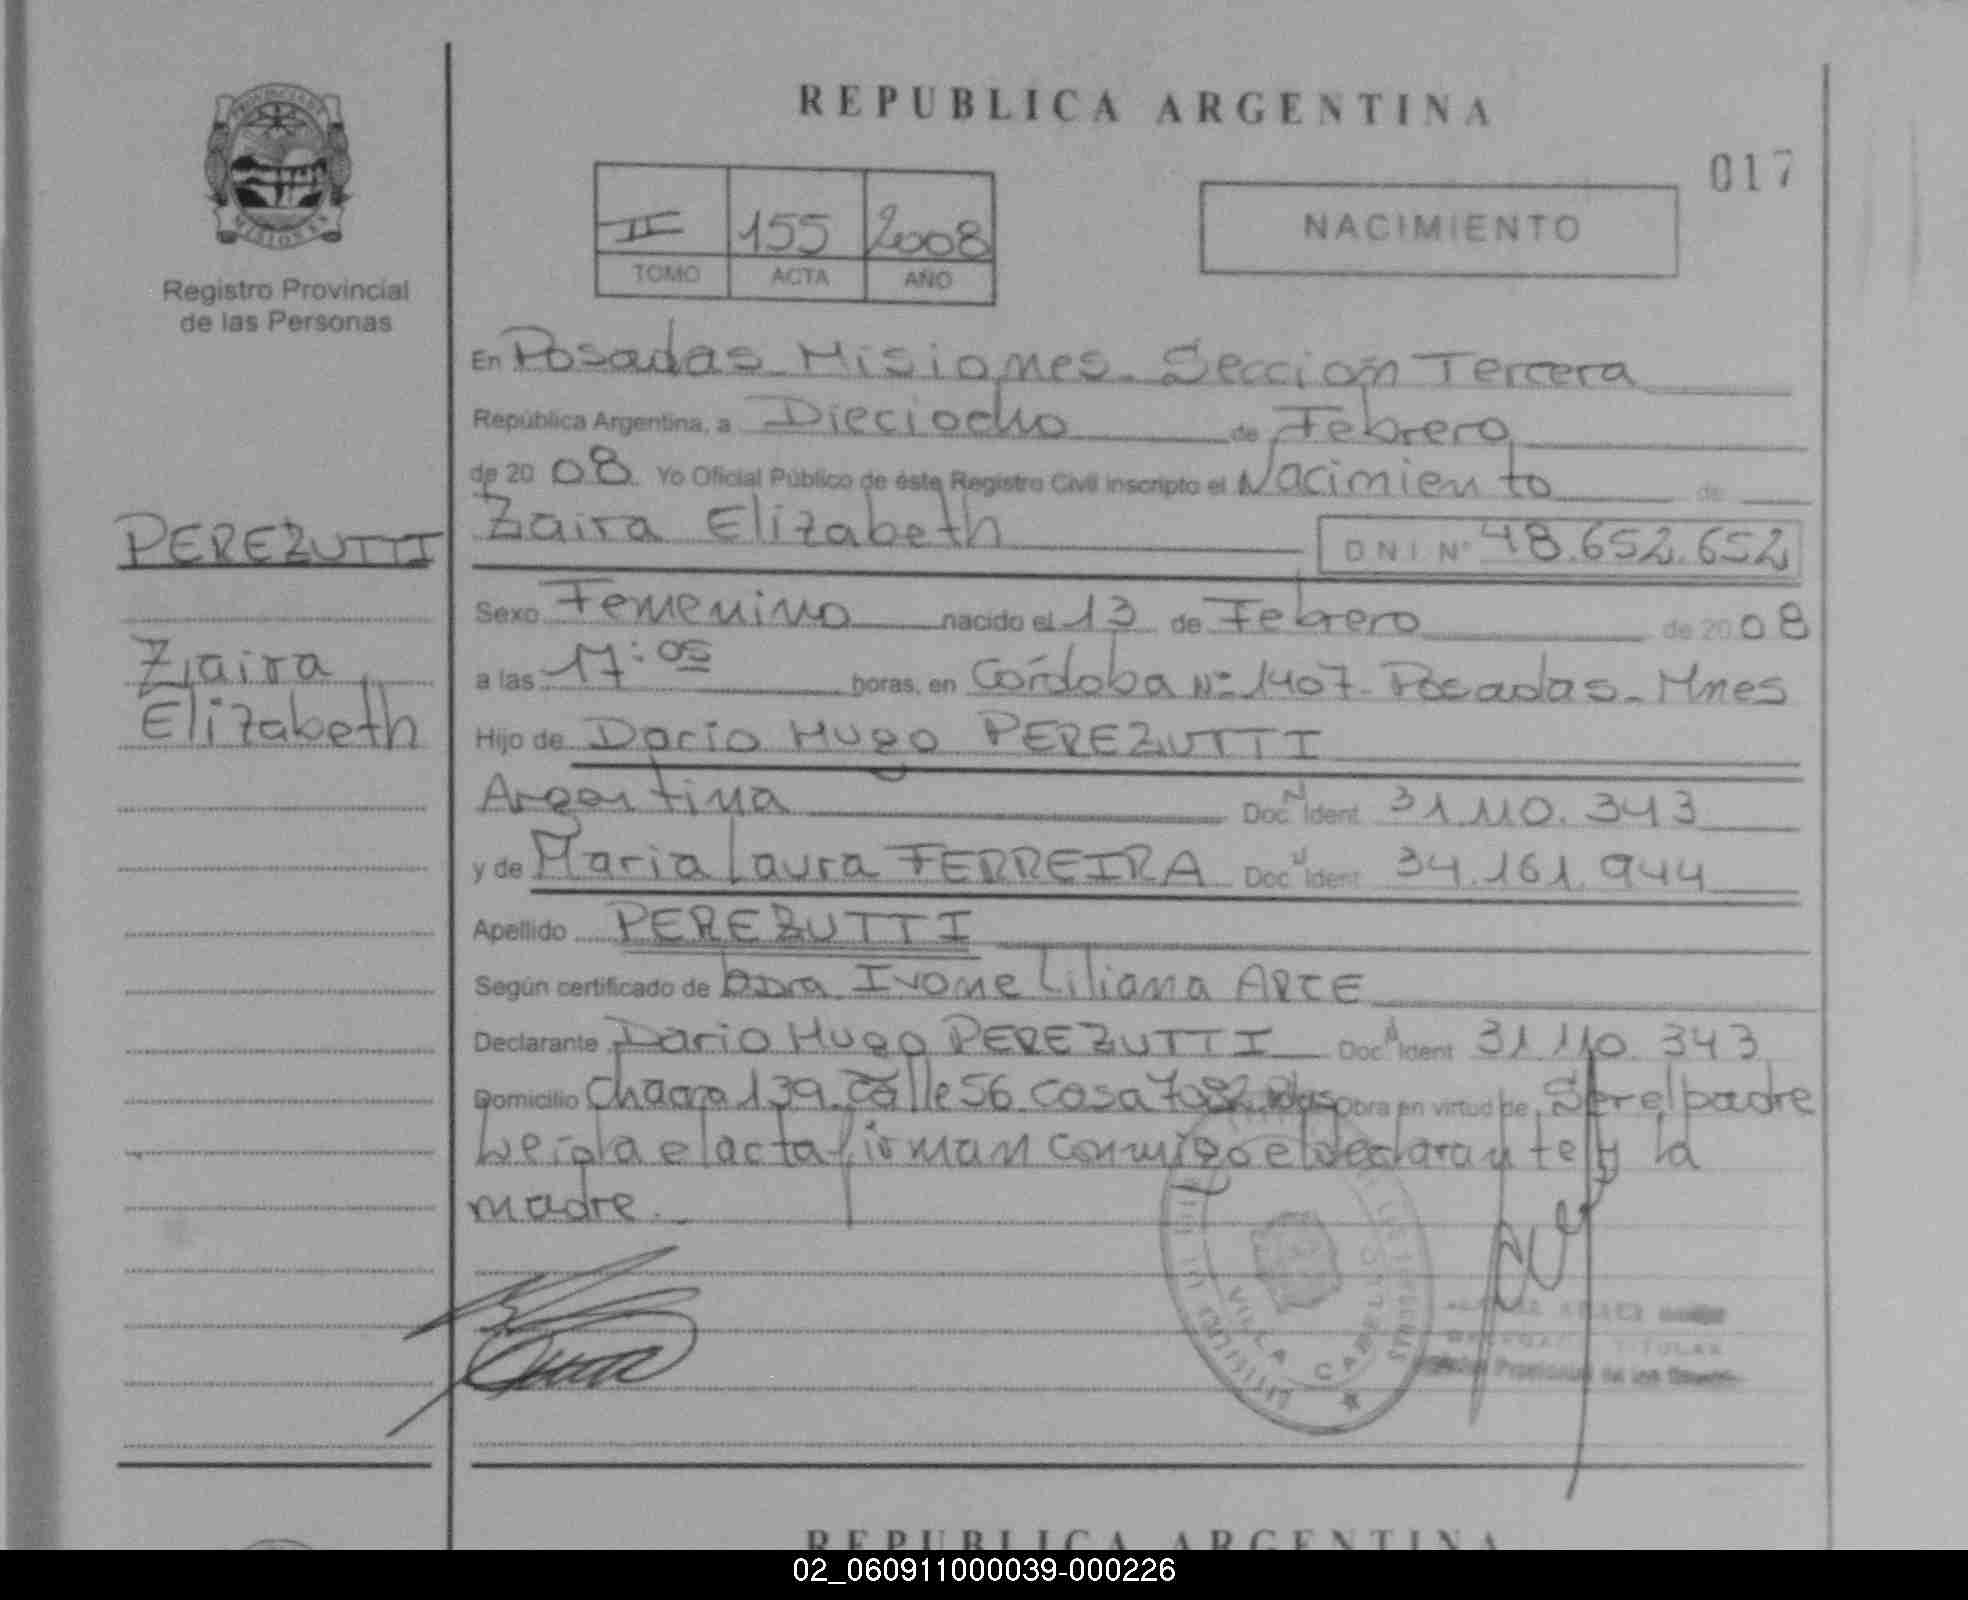 REPUBLICA ARGENTINA
017
PROVINCIA DE
MISIONES
Registro Provincial
de las Personas
II 155 2008
TOMO ACTA AÑO
NACIMIENTO
En Posadas - Misiones - Sección Tercera
República Argentina, a Dieciocho de Febrero
de 20 08. Yo Oficial Público de éste Registro Civil inscripto el Nacimiento de
PEREZUTTI
Zaira Elizabeth D N I Nº 48.652.652
Sexo Femenino nacido el 13 de Febrero de 20 08
Zaira
Elizabeth
a las 17:05 horas, en Córdoba Nº 1407 - Posadas - Mnes
Hijo de Dario Hugo PEREZUTTI
Argentina Doc N Ident 31.110.343
y de Maria Laura FERREIRA Doc N Ident 34.161.944
Apellido PEREZUTTI
Según certificado de Ivone Liliana ARCE
Declarante Dario Hugo PEREZUTTI Doc N Ident 31.110.343
Domicilio Chacra 139 Calle 56 Casa 7082 Pdas Obra en virtud de Ser el padre
Leída el acta firman conmigo el declarante y la
madre.
VILLA CABELLO
TITULAR
Provincial de las
REPUBLICA ARGENTINA
02_060911000039-000226